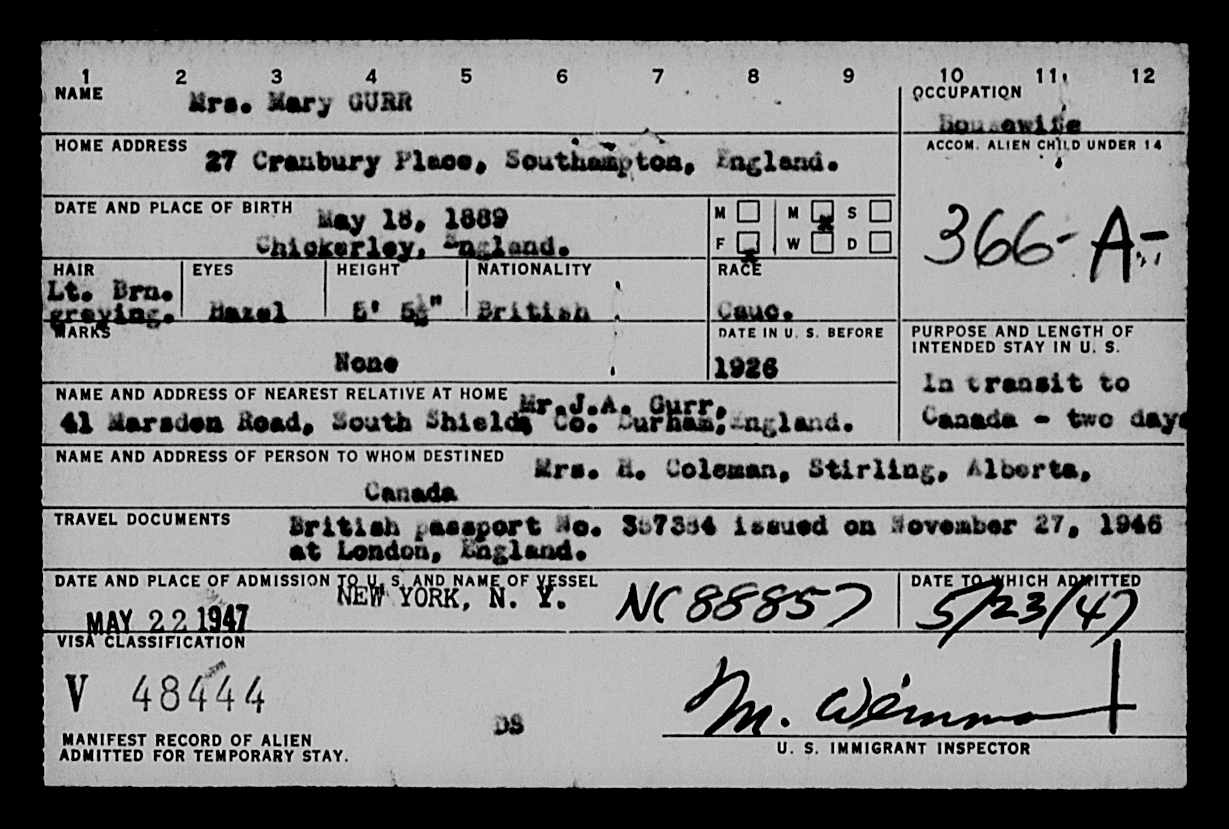 1 2 3 4 5 6 7 8 9 10 11 12
NAME
Mrs. Mary GURR
OCCUPATION
Housewife
HOME ADDRESS
27 Cranbury Place, Southampton, England.
ACCOM. ALIEN CHILD UNDER 14
366-A-
DATE AND PLACE OF BIRTH
May 18, 1889
Chickerley, England.
M M x S
F x W D
HAIR
Lt. Brn.
greying.
EYES
Hazel
HEIGHT
5' 5½"
NATIONALITY
British
RACE
Cauc.
MARKS
None
DATE IN U. S. BEFORE
1926
PURPOSE AND LENGTH OF
INTENDED STAY IN U. S.
In transit to
Canada - two days
NAME AND ADDRESS OF NEAREST RELATIVE AT HOME
Mr.J.A. Gurr,
41 Marsden Road, South Shields, Co. Durham, England.
NAME AND ADDRESS OF PERSON TO WHOM DESTINED
Mrs. H. Coleman, Stirling, Alberta,
Canada
TRAVEL DOCUMENTS
British passport No. issued on November 27, 1946
at London, England.
DATE AND PLACE OF ADMISSION TO U. S. AND NAME OF VESSEL
NEW YORK, N. Y.
MAY 22 1947
NC 88857
DATE TO WHICH ADMITTED
5/23/47
VISA CLASSIFICATION
V 48444
DS
M.
U. S. IMMIGRANT INSPECTOR
MANIFEST RECORD OF ALIEN
ADMITTED FOR TEMPORARY STAY.